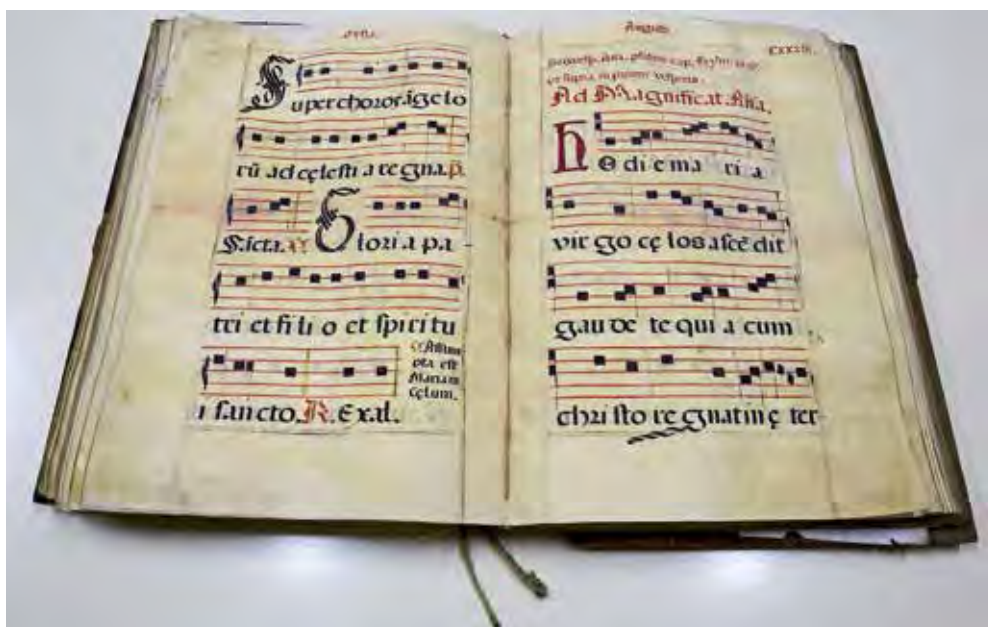 Super choros āgelo
rū ad cęlesti a re gna. p.
S.icta. Glori a pa -
tri et fi li o et spiritu
Assum
pta est
Maria in
cęlum.
i sancto. R. Exal.
Augusti.
Ad Magnificat. Aña.
ho di e ma ri a
vir go cę los ascē dit
gau de te qui a cum
chri sto re gnat in ę ter